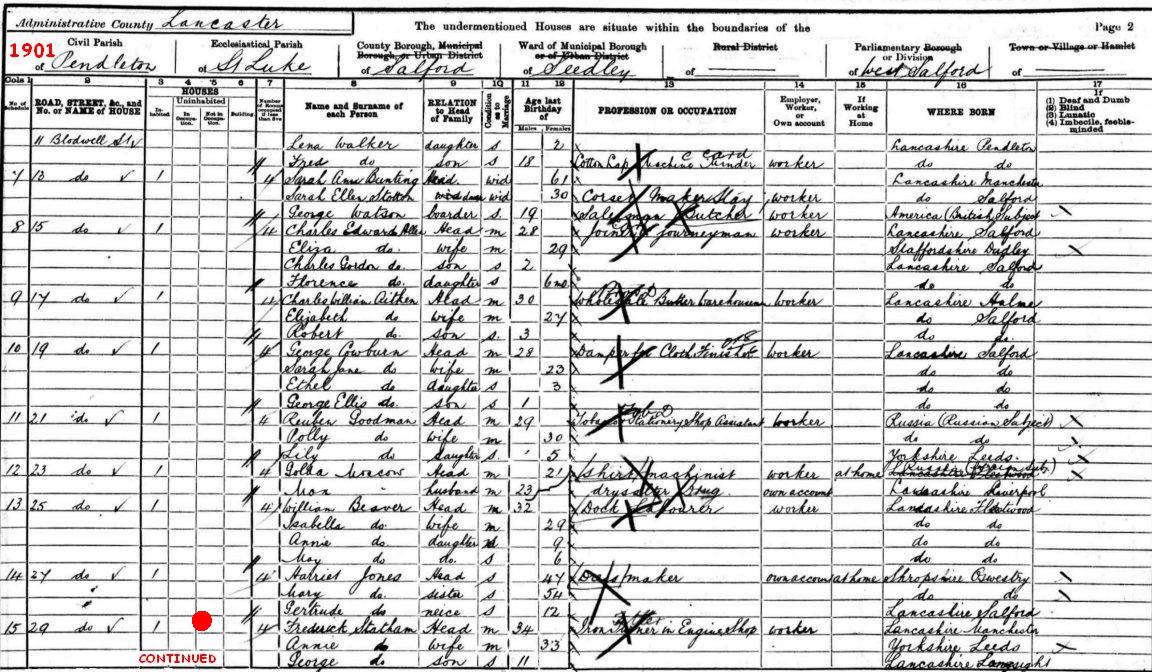 Administrative County Lancaster
The undermentioned Houses are situate within the boundaries of the
Page 2
1901
Civil Parish of Pendleton
Ecclesiastical Parish of St Luke
County Borough, Municipal Borough, or Urban District of Salford
Ward of Municipal Borough or of Urban District of Seedley
Rural District of
Parliamentary Borough or Division of West Salford
Town or Village or Hamlet of
Cols 1 2 3 4 5 6 7 8 9 10 11 12 13 14 15 16 17
No. of Schedule
ROAD, STREET, &c., and No. or NAME of HOUSE
HOUSES
Inhabited
Uninhabited
In Occupation
Not in Occupation
Building
Name and Surname of each Person
RELATION to Head of Family
Condition as to Marriage
Age last Birthday of
Males Females
PROFESSION OR OCCUPATION
Employer, Worker, or Own account
If Working at Home
WHERE BORN
If
(1) Deaf and Dumb
(2) Blind
(3) Lunatic
(4) Imbecile, feeble-minded
11 Blodwell St Lena Walker daughter s 2 Lancashire Pendleton
Fred do son s 18 Cotton worker do do
7 13 do 1 4 Sarah Ann Bunting Head wid 61 Lancashire Manchester
Sarah Ellen wid 30 Corset Maker Stay worker do Salford
George Watson boarder s 19 Salesman Butcher worker America (British Subject
8 15 do 1 4 Charles Edward Allen Head m 28 Joiner journeyman worker Lancashire Salford
Eliza do. wife m 29 Staffordshire Dudley
Charles Gordon do. son s 2 Lancashire Salford
Florence do. daughter s 6 mo. do do
9 17 do 1 4 Charles William Aitken Head m 30 Wholesale Butter Warehouseman worker Lancashire Hulme
Elizabeth do wife m 27 do Salford
Robert do. son s. 3 do do.
10 19 do 1 4 George Cowburn Head m 28 Damper for Cloth worker Lancashire Salford
Sarah Jane do wife m 23 do do
Ethel do daughter s 3 do do
George Ellis do. son s 1 do do
11 21 do 1 4 Reuben Goodman Head m 29 Stationery Shop Assistant worker Russia (Russian Subject)
Polly do wife m 30 do do
Lily do daughter s 5 Yorkshire Leeds.
12 23 do 1 4 Golda Head m 21 Shirt machinist worker at home
husband m 23 Drug own account Liverpool
13 25 do 1 4 William Beaver Head m 32 Dock Labourer worker Lancashire Fleetwood
Isabella do. wife m 29 do do
Annie do. daughter 9 do do
May do do. s 6 do do
14 27 do 1 4 Harriet Jones Head s 47 Dressmaker own account at home Shropshire Oswestry
Mary do. sister s 54 do do
Gertrude do neice s 12 Lancashire Salford
15 29 do 1 4 Frederick Statham Head m 34 Iron Turner in Engine Shop worker Lancashire Manchester
Annie do wife m 33 Yorkshire Leeds
George do son s 11 Lancashire Longsight
CONTINUED